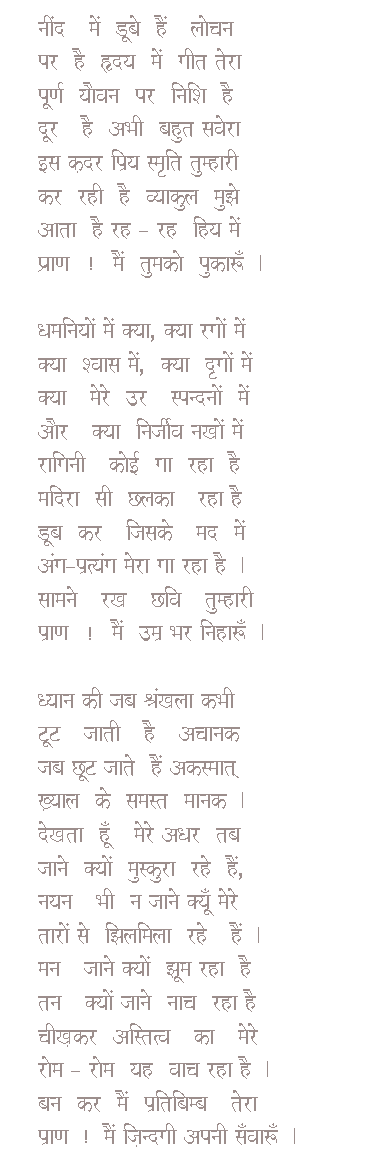 नींद में डूबे हैं लोचन
पर है हृदय में गीत तेरा
पूर्ण यौवन पर निशि है
दूर है अभी बहुत सवेरा
इस कदर प्रिय स्मृति तुम्हारी
कर रही है व्याकुल मुझे
आता है रह - रह हिय में
प्राण ! मैं तुमको पुकारूँ |

धमनियों में क्या, क्या रगों में
क्या श्वास में, क्या दृगों में
क्या मेरे उर स्पन्दनों में
और क्या निर्जीव नखों में
रागिनी कोई गा रहा है
मदिरा सी छलका रहा है
डूब कर जिसके मद में
अंग-प्रत्यंग मेरा गा रहा है |
सामने रख छवि तुम्हारी
प्राण ! मैं उम्र भर निहारूँ |

ध्यान की जब श्रंखला कभी
टूट जाती है अचानक
जब छूट जाते हैं अकस्मात्
ख़्याल के समस्त मानक |
देखता हूँ मेरे अधर तब
जाने क्यों मुस्कुरा रहे हैं,
नयन भी न जाने क्यूँ मेरे
तारों से झिलमिला रहे हैं |
मन जाने क्यों झूम रहा है
तन क्यों जाने नाच रहा है
चीख़कर अस्तित्व का मेरे
रोम - रोम यह वाच रहा है |
बन कर मैं प्रतिबिम्ब तेरा
प्राण ! मैं ज़िन्दगी अपनी सँवारूँ |